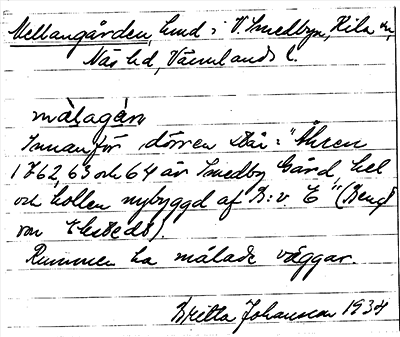 Mellangården, hmd i V. Smedbyn, Kila sn,
Näs hd, Värmlands l.
mȧ̀lagȧn
Innanför dörren står: "Åhren
1762, 63 och 64 är Smedby Gård, hel
och hollen nybyggd af B: v. E" (Bengt
von Ekstedt).
Rummen ha målade väggar.
Britta Johansson 1934